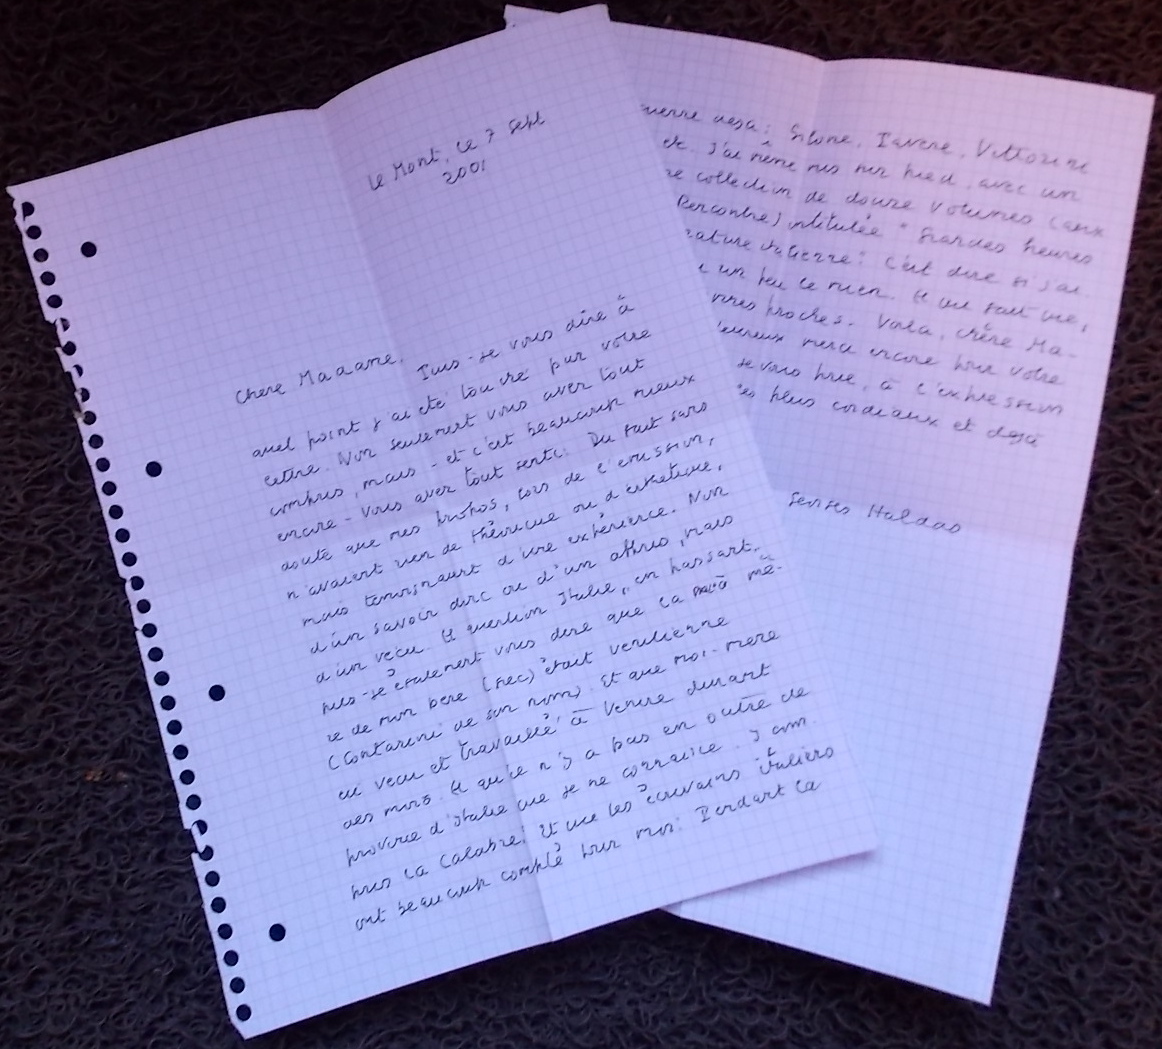 Le Mont, le 7 Sept
2001
Chère Madame,
Puis-je vous dire à
quel point j'ai été touché par votre
lettre. Non seulement vous avez tout
compris, mais - et c'est beaucoup mieux
encore - vous avez tout senti. Du fait sans
doute que mes propos, lors de l'émission,
n'avaient rien de théorique ou d'esthétique,
mais témoignaient d'une expérience. Non
d'un savoir donc ou d'un appris, mais
d'un vécu. Et question Italie, en passant,
puis-je également vous dire que la mè-
re de mon père (grec) était vénitienne
(Contarini de son nom). Et que moi-même
ai vécu et travaillé à Venise durant
des mois. Et qu'il n'y a pas en outre de
province d'Italie que je ne connaisse. Y com-
pris la Calabre. Et que les écrivains italiens
ont beaucoup compté pour moi. Pendant la
guerre déjà: Silone, Pavese, Vittorini
etc. J'ai même mis sur pied, avec un
collection de douze volumes (aux
Rencontre) intitulée "Grandes heures
italienne: C'est dire si j'ai
un peu ce rien. Et qui fait que,
proches. Voilà, chère Ma-
merci encore pour votre
je vous prie, à l'expression
plus cordiaux et déjà
Georges Haldas